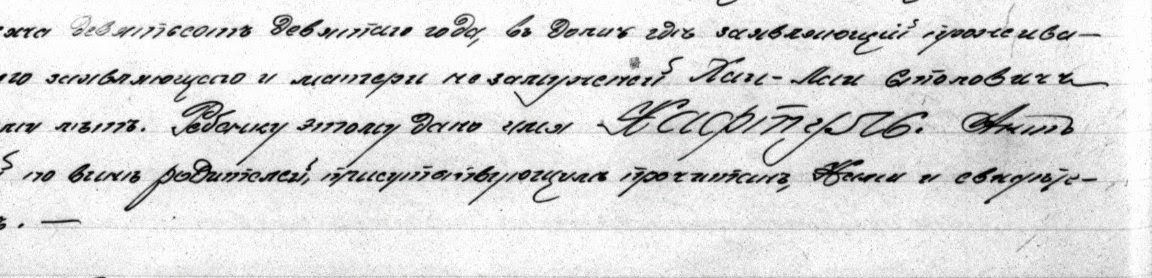 сяча девятьсотъ девятаго года, въ домѣ гдѣ заявляющій прожива-
его заявляющаго и матери незамужней Хаи-Маи Столовичъ
лѣтъ. Ребенку этому дано имя Нафтулъ. Актъ
й по винѣ родителей, присутствующимъ прочитанъ, Нами и свидѣте-
ъ. —